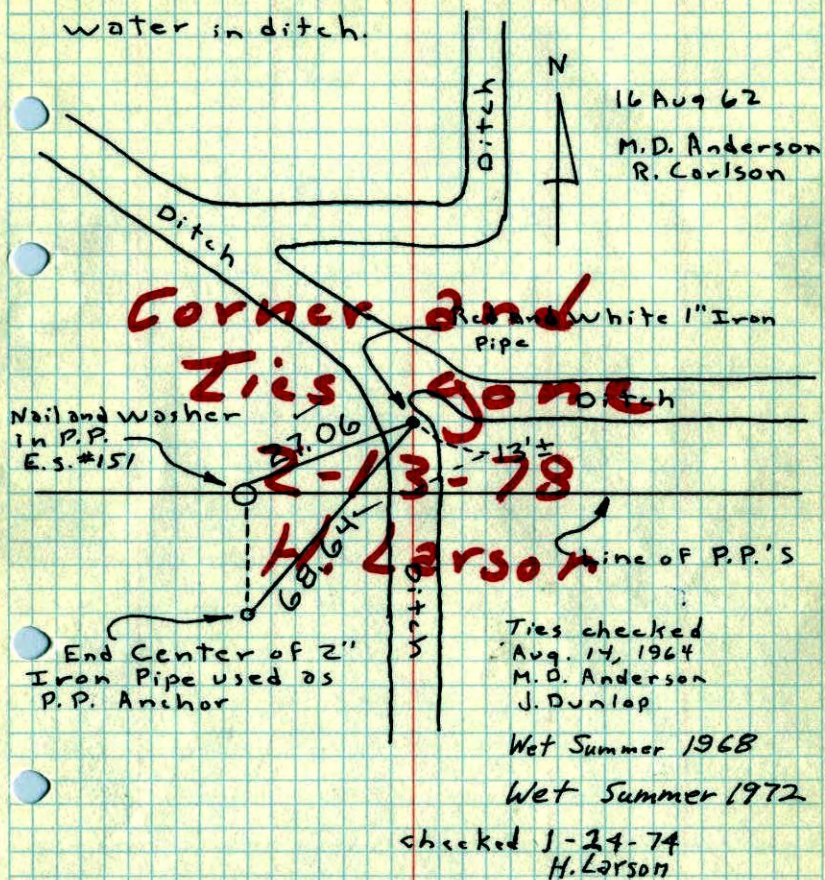 water in ditch.
N
16 Aug 62
M.D. Anderson
R. Carlson
Ditch
Ditch
Corner and
Ties gone
2-13-78
H. Larson
Red and White 1" Iron
Pipe
Ditch
Nail and Washer
in P.P.
E.S. #151
27.06
13'±
68.64
Line of P.P.'s
Ditch
End Center of 2"
Iron Pipe used as
P.P. Anchor
Ties checked
Aug. 14, 1964
M.D. Anderson
J. Dunlop
Wet Summer 1968
Wet Summer 1972
checked 1-24-74
H. Larson